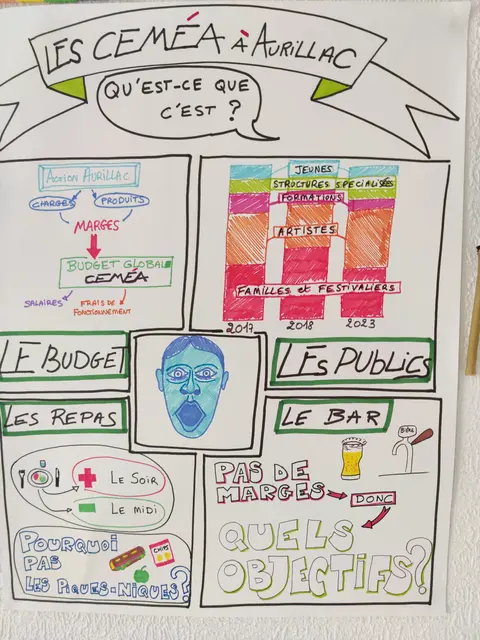 LES CEMÉA À AURILLAC
QU'EST-CE QUE
C'EST ?
ACTION AURILLAC
CHARGES
PRODUITS
MARGES
BUDGET GLOBAL
CEMÉA
SALAIRES
FRAIS DE
FONCTIONNEMENT
JEUNES
STRUCTURES SPÉCIALISÉES
FORMATIONS
ARTISTES
FAMILLES et FESTIVALIERS
2017 2018 2023
LE BUDGET
LES PUBLICS
LES REPAS
LE SOIR
LE MIDI
POURQUOI
PAS
LES PIQUES-NIQUES?
CHIPS
LE BAR
BIÈRE
PAS DE
MARGES
DONC
QUELS
OBJECTIFS?